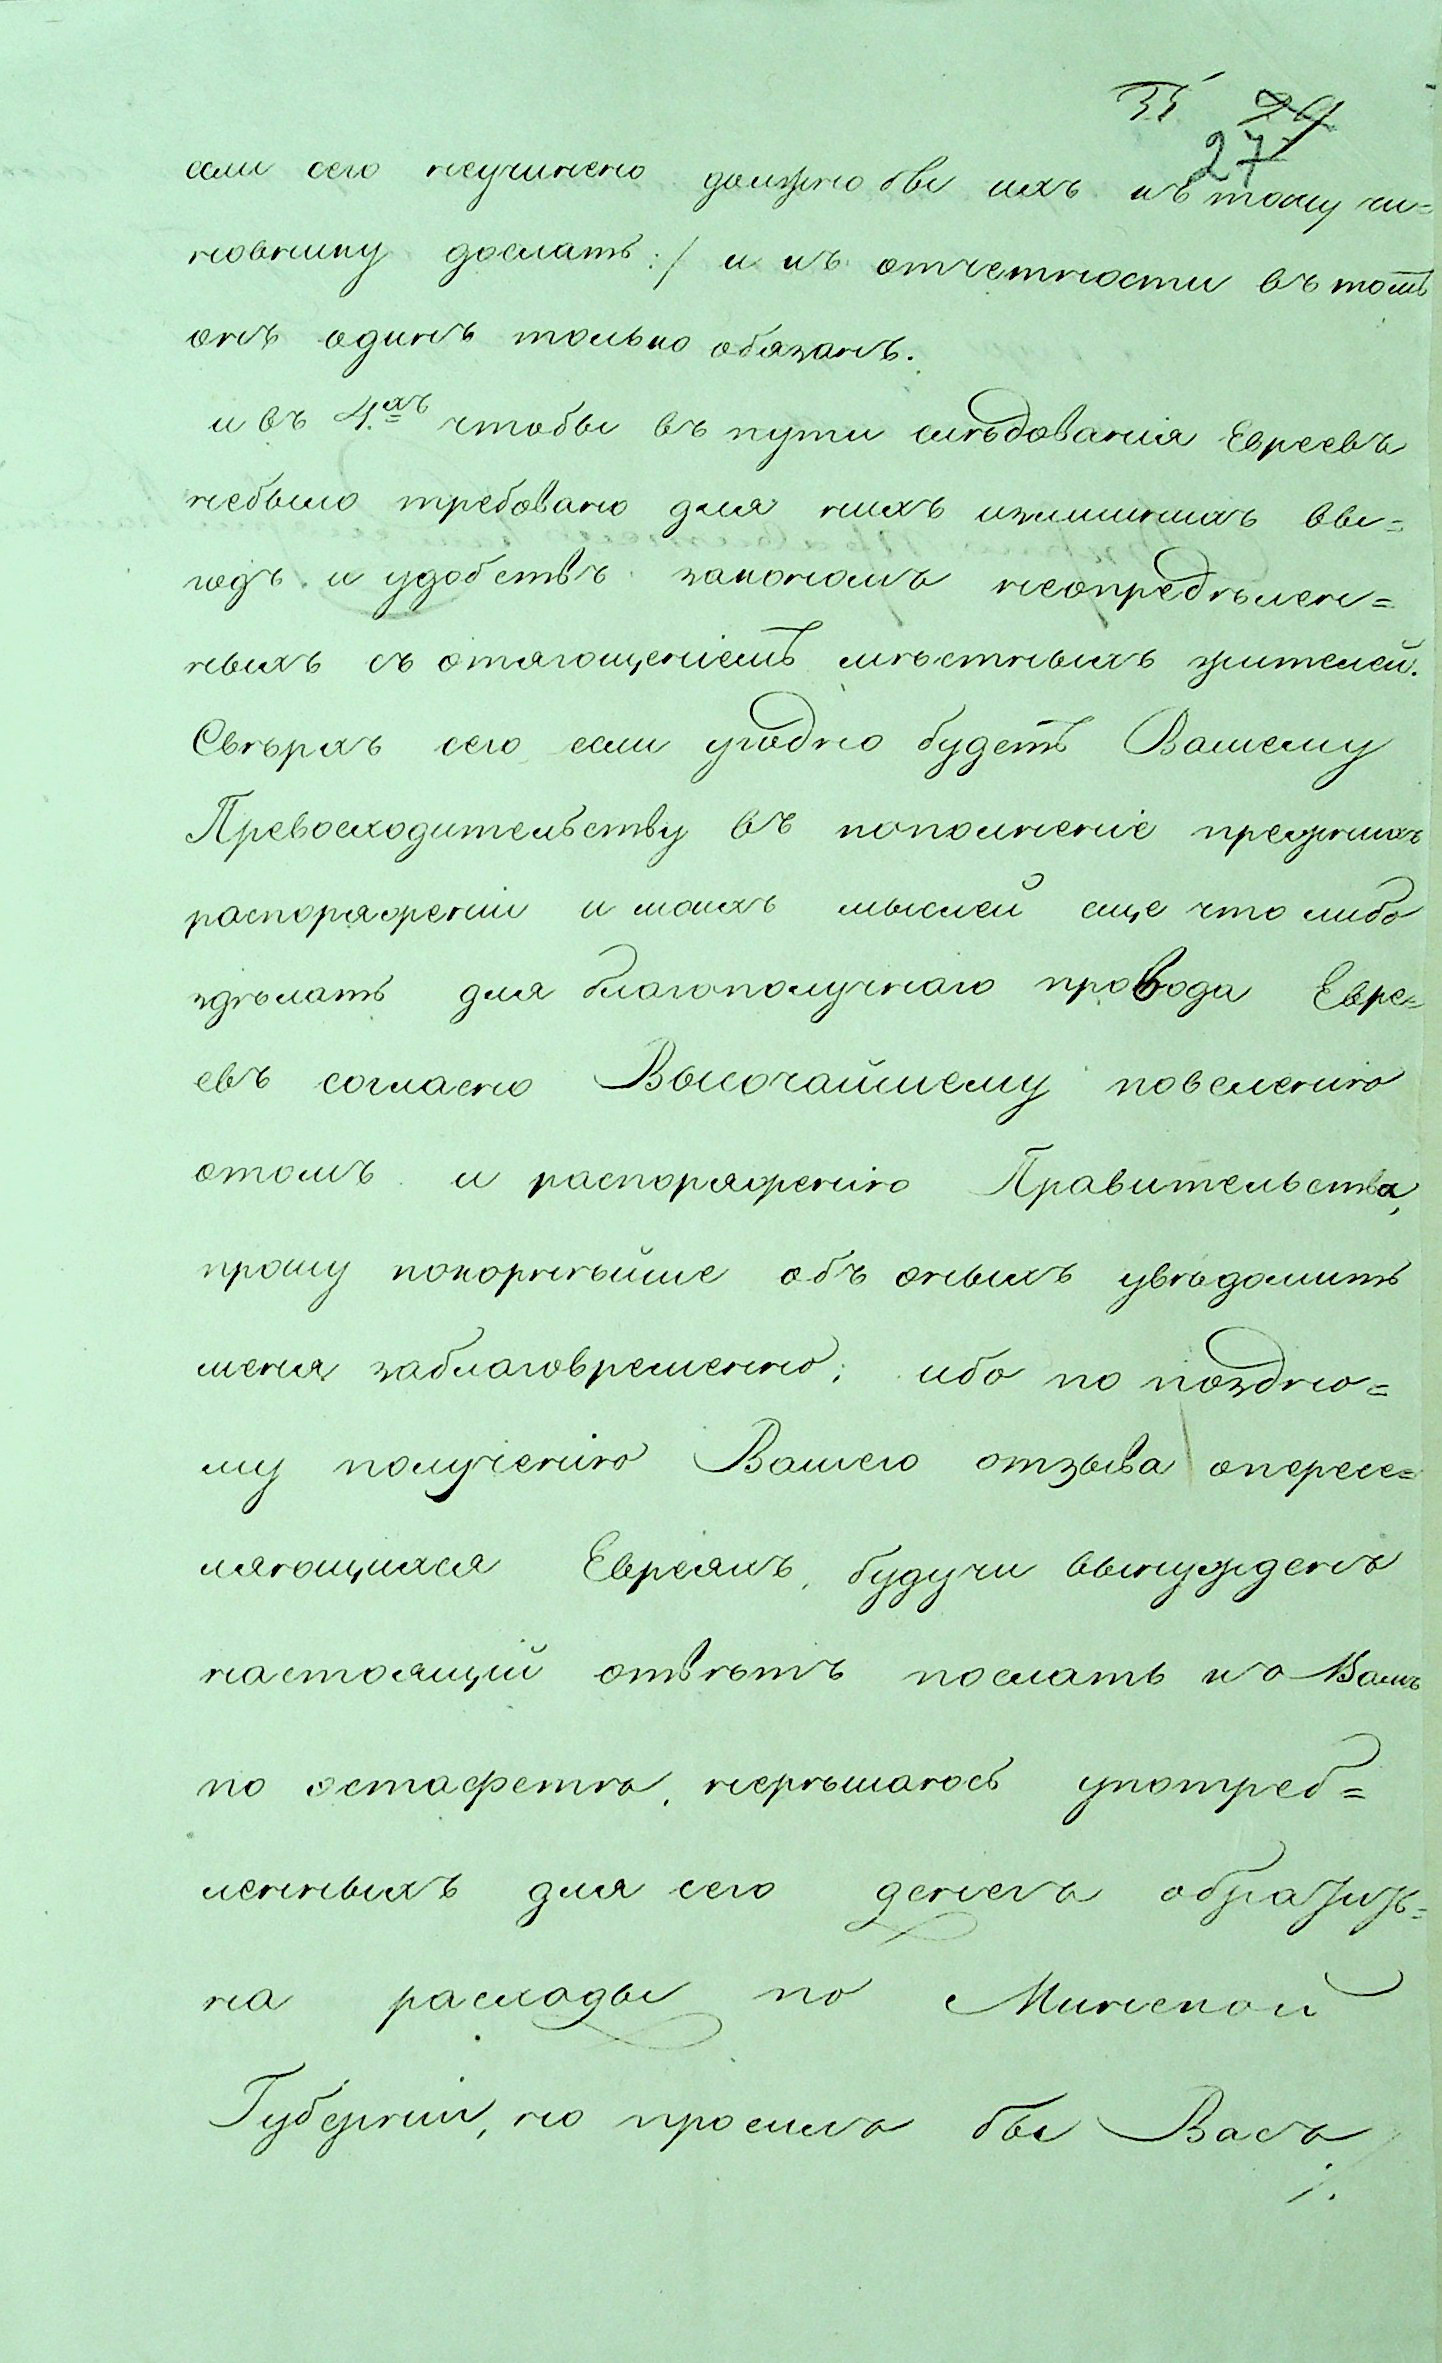 27
если сего неучинено должно бы ихъ къ тому чи=
новнику дослать:/ и къ отчетности въ томъ
онъ одинъ только обязанъ.
и въ 4.хъ чтобы въ пути слѣдованія Евреевъ
небыло требовано для нихъ излишнихъ вы=
годъ и удобствъ закономъ неопредѣлен=
ныхъ съ отягощеніемъ мѣстныхъ жителей.
Свѣрхъ сего если угодно будетъ Вашему
Превосходительству въ пополненіе прежнихъ
распоряженіи и моихъ мыслей еще что либо
здѣлать для благополучнаго провода Евре=
евъ согласно Высочайшему повеленію
отомъ и распоряженію Правительства,
прошу покорнѣйше объ оныхъ увѣдомить
меня заблаговременно; ибо по поздно=
му полученію Вашего отзыва опересе=
ляющихся Евреяхъ, будучи вынужденъ
настоящій отвѣтъ послать к Вамъ
по эстафетѣ, нерѣшаюсь употреб=
ленныхъ для сего денегъ
на расходы по Минской
Губерніи, но просилъ бы Васъ
./.